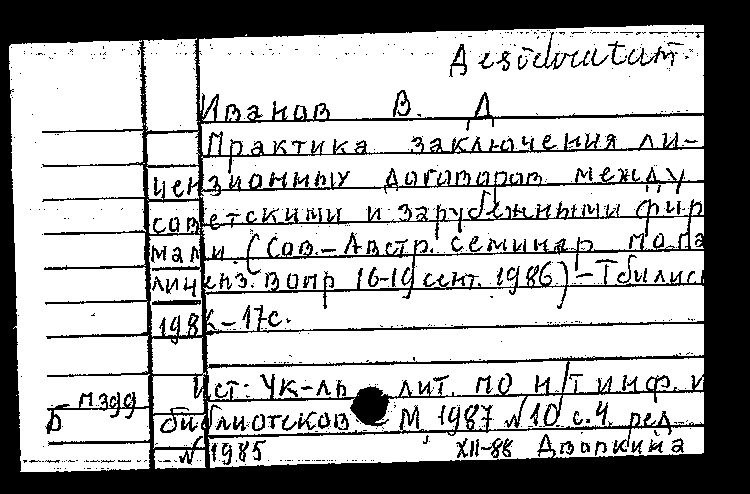 Desideratum.
Иванов В. Д
Практика заключения ли-
цензионных договоров между
советскими и зарубежными фир
мами. (Сов.-Австр. семинар по па
лиценз. вопр 16-19 сент. 1986) - Тбилиси
1986 - 17с.
Ист: Ук-ль лит. по н/т инф. и
Б п399 библиотеков М, 1987 №10 с.4. ред
№1985 XII-88 Дворкина